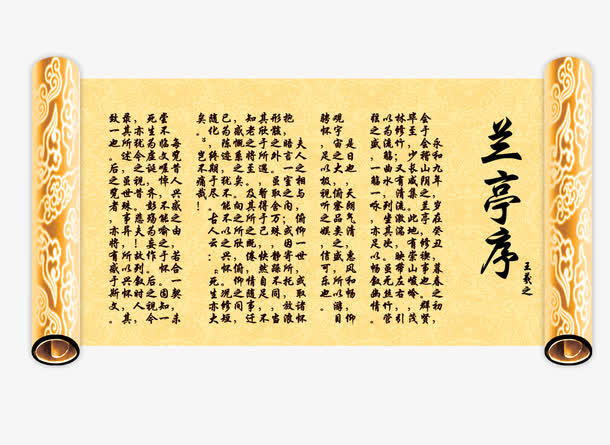 兰亭序
王羲之
永和九年，岁在癸丑，暮春之初，
会于会稽山阴之兰亭，修禊事也。群贤
毕至，少长咸集。此地有崇山峻岭，茂
林修竹；又有清流激湍，映带左右，引
以为流觞曲水，列坐其次。虽无丝竹管
弦之盛，一觞一咏，亦足以畅叙幽情。
是日也，天朗气清，惠风和畅，仰
观宇宙之大，俯察品类之盛，所以游目
骋怀，足以极视听之娱，信可乐也。
夫人之相与，俯仰一世，或取诸怀
抱，晤言一室之内；或因寄所托，放浪
形骸之外。虽取舍万殊，静躁不同，当
其欣于所遇，暂得于己，快然自足，不
知老之将至。及其所之既倦，情随事迁，
感慨系之矣。向之所欣，俯仰之间，
已为陈迹，犹不能不以之兴怀。况修短
随化，终期于尽。古人云：“死生亦大
矣。”岂不痛哉！
每览昔人兴感之由，若合一契，未
尝不临文嗟悼，不能喻之于怀。固知一
死生为虚诞，齐彭殇为妄作。后之视今，
亦犹今之视昔。悲夫！故列叙时人，
录其所述，虽世殊事异，所以兴怀，其
致一也。后之览者，亦将有感于斯文。